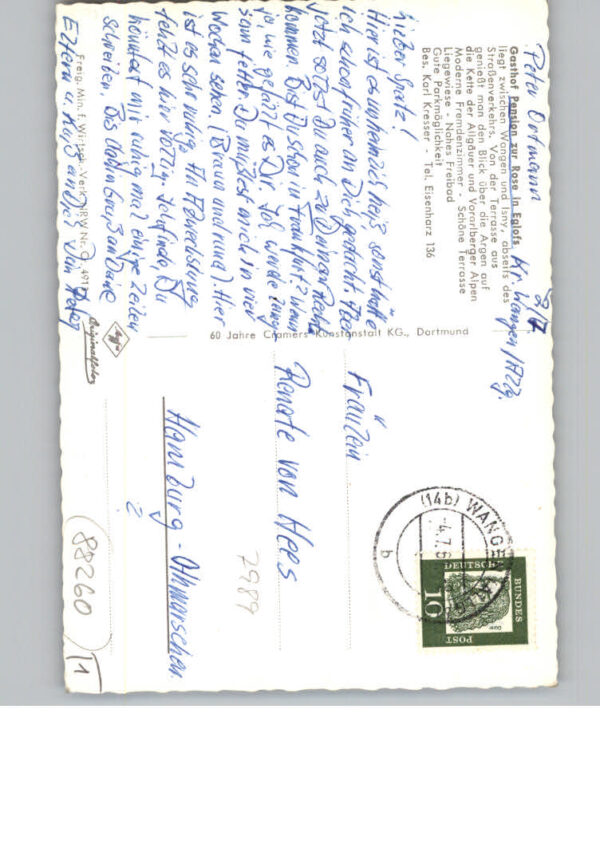 Peter Ortmann
Gasthof Pension zur Rose in Eglofs Kr. Wangen/Allg.
liegt zwischen Wangen und Isny, abseits des
Straßenverkehrs. Von der Terrasse aus
genießt man den Blick über die Argen auf
die Kette der Allgäuer und Vorarlberger Alpen
Moderne Fremdenzimmer - Schöne Terrasse
Liegewiese - Nahes Freibad
Gute Parkmöglichkeit
Bes. Karl Kresser - Tel. Eisenharz 136
3/7
Lieber Spatz!
Hier ist es unheimlich heiß, sonst hätte
ich schon früher an Dich gedacht. Aber
jetzt sollst Du noch zu Deinem Recht
kommen. Bist Du schon in Frankfurt? Wenn
ja, wie gefällt es Dir. Ich werde lang-
sam fetter. Du müßtest mich in vier
Wochen sehen (Braun und rund). Hier
ist es sehr ruhig. Die Abwechslung
fehlt es hier völlig. Ich finde, Du
könntest mir ruhig mal einige Zeilen
schreiben. Bis dahin Gruß an Deine
Eltern u. Kuß an Dich von Peter
Freig. Min. f. Wirtsch. Verk. NRW Nr. O, 491
Agfa
Originalfoto
60 Jahre Cramers Kunstanstalt KG., Dortmund
Fräulein
Renate von Hees
Hamburg-Othmarschen
2
7989
(14b) WANGEN
-4.7.6
b
DEUTSCHE
BUNDES
POST
10
88260
1